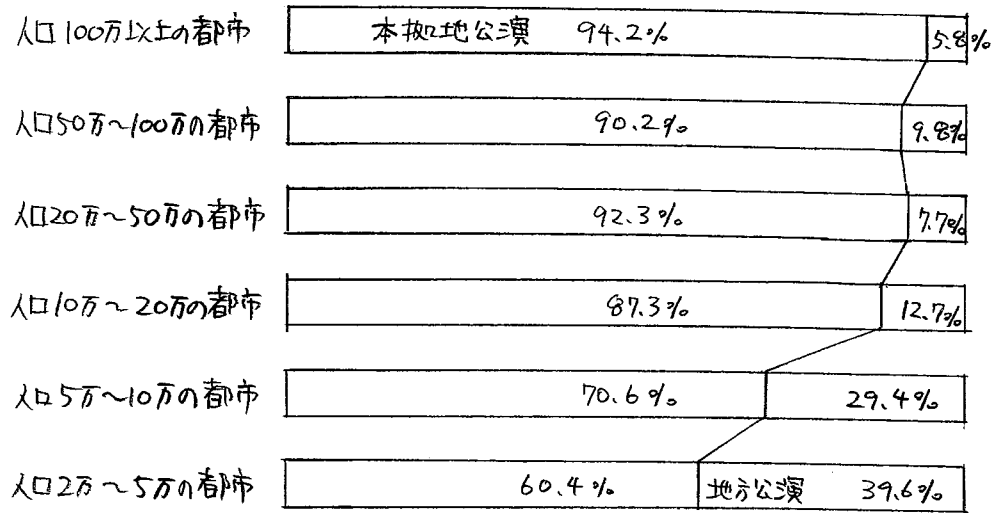 人口100万以上の都市 本拠地公演 94.2% 5.8%
人口50万～100万の都市 90.2% 9.8%
人口20万～50万の都市 92.3% 7.7%
人口10万～20万の都市 87.3% 12.7%
人口5万～10万の都市 70.6% 29.4%
人口2万～5万の都市 60.4% 地方公演 39.6%